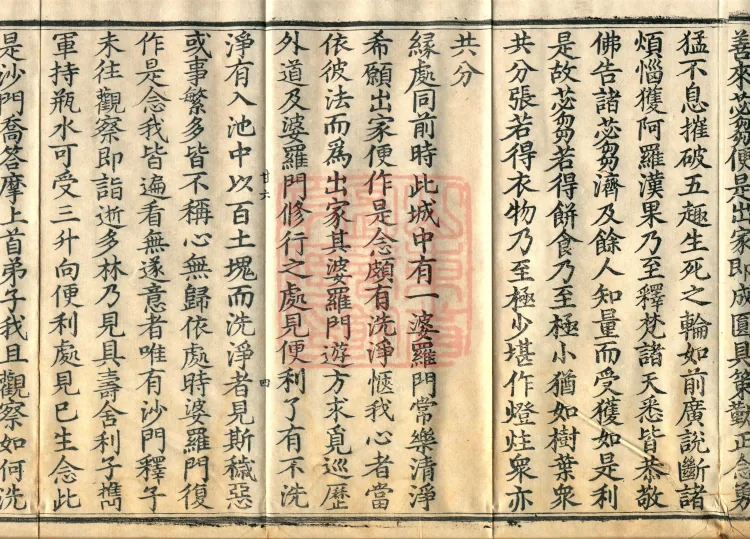 善來苾芻便是出家即成圓具策勤正念勇
猛不息摧破五趣生死之輪如前廣說斷諸
煩惱獲阿羅漢果乃至釋梵諸天悉皆恭敬
佛告諸苾芻濟及餘人知量而受獲如是利
是故苾芻若得餅食乃至極小猶如樹葉衆
共分張若得衣物乃至極少堪作燈炷衆亦
共分
緣處同前時此城中有一婆羅門常樂清淨
希願出家便作是念頗有洗淨愜我心者當
依彼法而爲出家其婆羅門遊方求覓巡歷
外道及婆羅門修行之處見便利了有不洗
淨有入池中以百土塊而洗淨者見斯穢惡
或事繁多皆不稱心無歸依處時婆羅門復
作是念我皆遍看無遂意者唯有沙門釋子
未往觀察即詣逝多林乃見具壽舍利子雋
軍持瓶水可受三升向便利處見已生念此
是沙門喬答摩上首弟子我且觀察如何洗
廿六
四